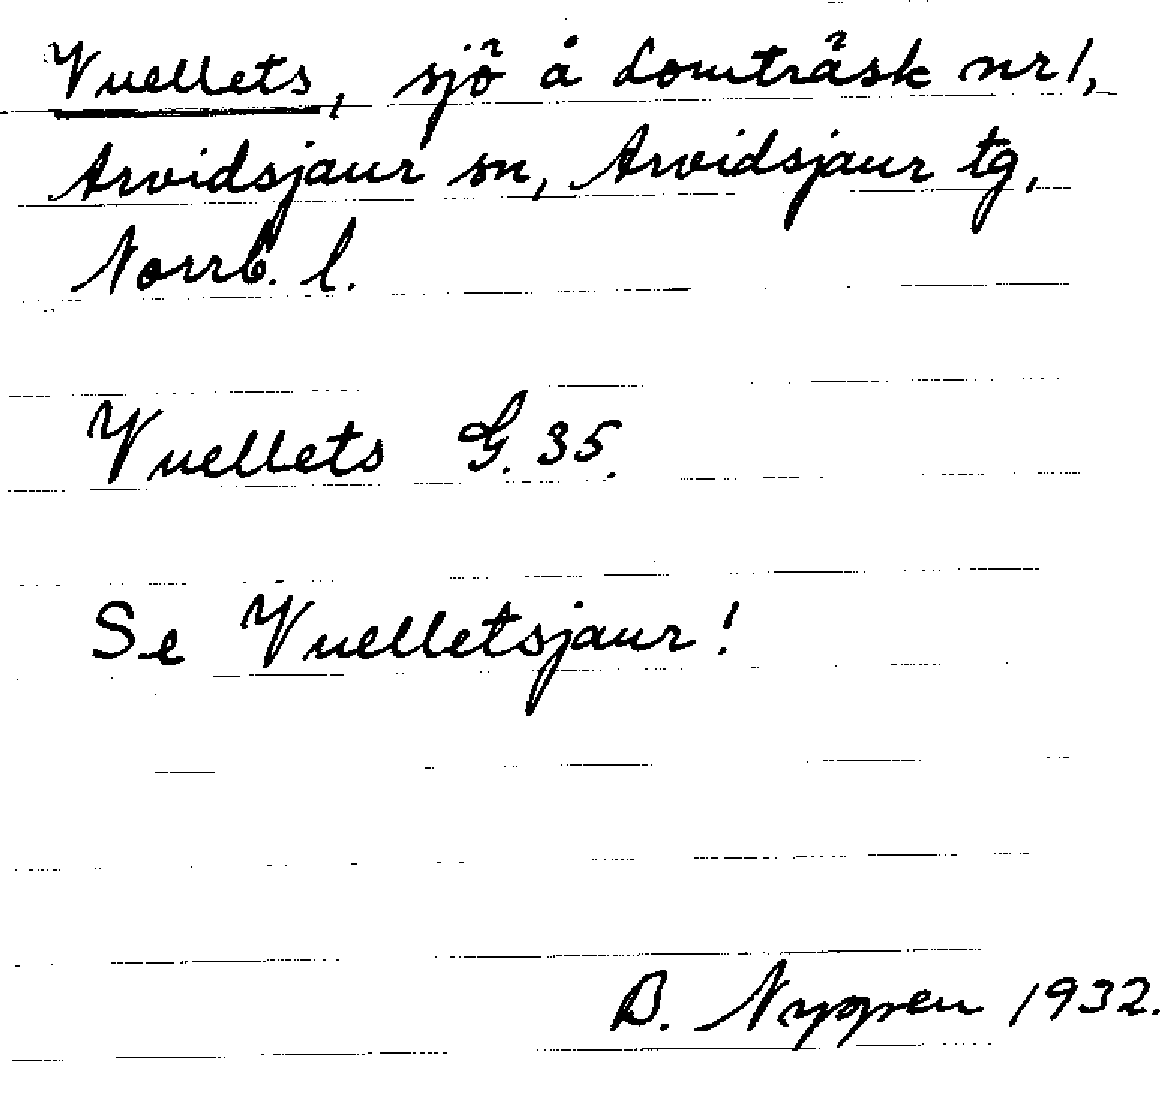 Vuellets, sjö å Lomträsk nr 1,
Arvidsjaur sn, Arvidsjaur tg,
Norrb. l.
Vuellets G. 35.
Se Vuelletsjaur!
B. Nygren 1932.